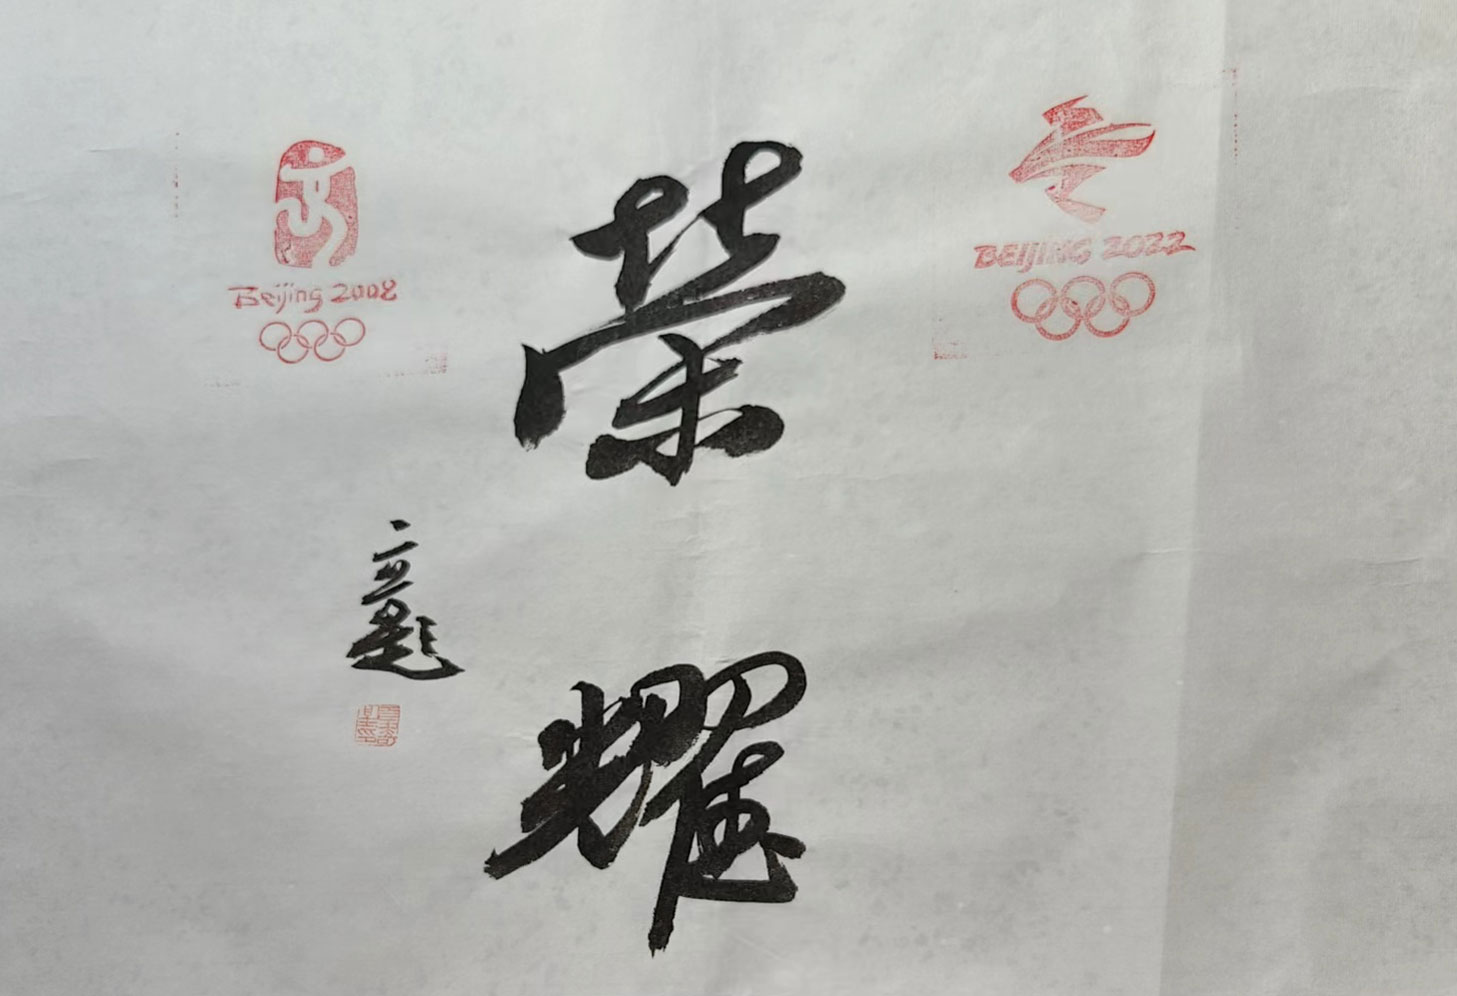 Beijing 2008
BEIJING 2022
荣
耀
立题